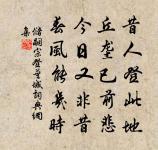 昔人登此地
丘壟已前悲
今日又非昔
春風能幾時
儲嗣宗登蕪城詞典網
集